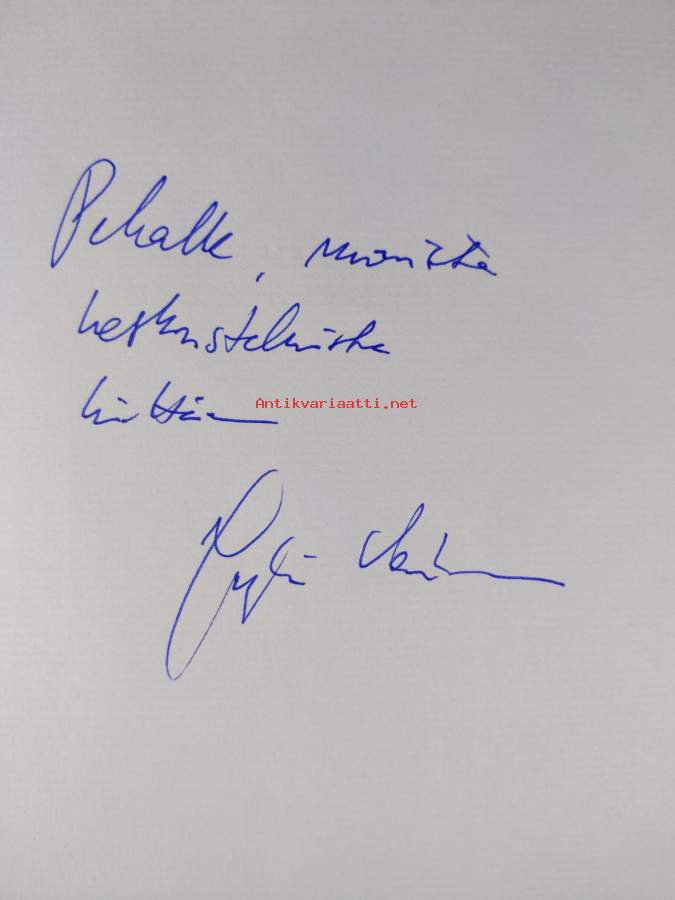 Pekalle, monista
keskusteluista
kiittäen
Antikvariaatti.net